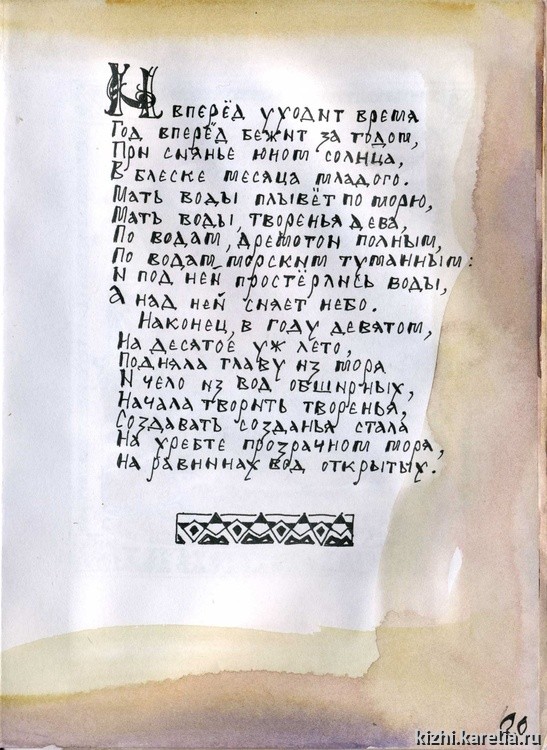 И вперёд уходит время
Год вперёд бежит за годом,
При сиянье юном солнца,
В блеске месяца младого.
Мать воды плывёт по морю,
Мать воды, творенья дева,
По водам, дремотой полным,
По водам морским туманным:
И под ней простёрлись воды,
А над ней сияет небо.
Наконец, в году девятом,
На десятое уж лето,
Подняла главу из моря
И чело из вод обширных,
Начала творить творенья,
Создавать созданья стала
На хребте прозрачном моря,
На равнинах вод открытых.
kizhi.karelia.ru